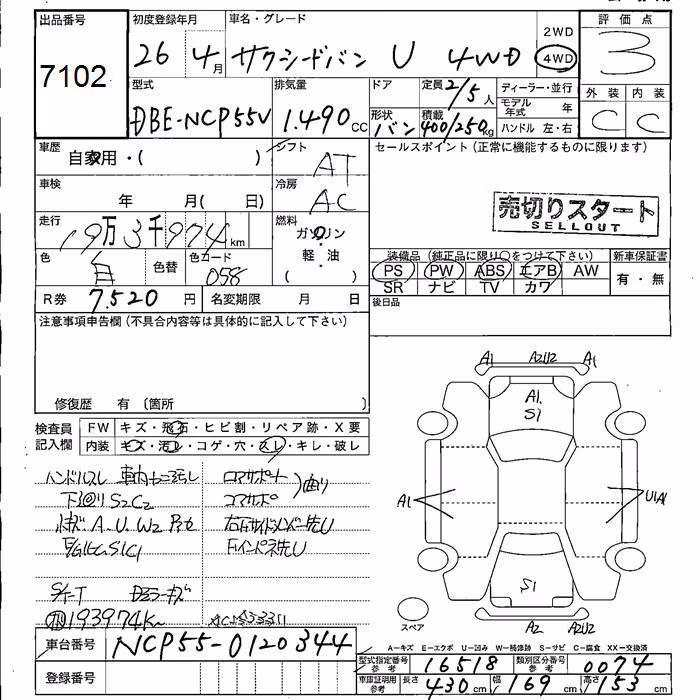 出品番号
7102
初度登録年月
26年4月
車名・グレード
サクシードバン U 4WD
2WD
4WD
評価点
3
外装 内装
C C
型式
DBE-NCP55V
排気量
1.490 cc
ドア
形状
バン
定員 2/5人
積載
400/250kg
ディーラー・並行
モデル年式 年
ハンドル 左・右
車歴
自家用・( )
シフト
AT
車検
年 月( 日)
冷房
AC
走行
19万3千974km
燃料
ガソリン
軽・油
( )
色
白
色替
色コード
058
R券 7.520円
名変期限 月 日
セールスポイント(正常に機能するものに限ります)
売切りスタート
SELLOUT
装備品(純正品に限り○をつけて下さい)
新車保証書
PS PW ABS エアB AW
SR ナビ TV カワ
有・無
後日品
注意事項申告欄(不具合内容等は具体的に記入して下さい)
修復歴 有(箇所 )
検査員
記入欄
FW キズ・飛石・ヒビ割・リペア跡・X要
内装 キズ・汚レ・コゲ・穴・スレ・キレ・破レ
ハンドルスレ
下回りS2C2
コアサポート
コアサポ
曲り
A.U.W2
193974K
A1 A2U2 A1
A1
S1
A1
U1A1
S1
A2 A2U2
スペア
車台番号 NCP55-0120344
登録番号
A—キズ E—エクボ U—凹み W—補修跡 S—サビ C—腐食 XX—交換済
型式指定番号
参考
16518
類別区分番号
参考
0074
車庫証明用
参考
長さ 430cm 幅 169cm 高さ 153cm